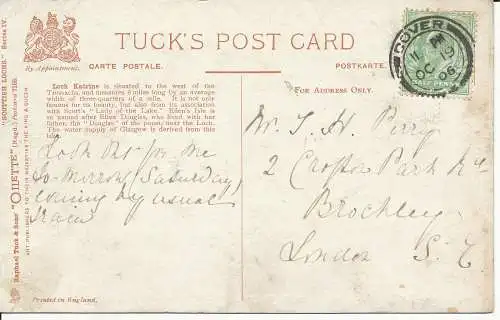 TUCK'S POST CARD
By Appointment.
CARTE POSTALE.
POSTKARTE.
"SCOTTISH LOCHS." Series IV.
Raphael Tuck & Sons' "OILETTE" (Regd.) Postcard
ART PUBLISHERS TO THEIR MAJESTIES THE KING & QUEEN
Loch Katrine is situated to the west of the
Trossachs, and measures 8 miles long by an average
width of three-quarters of a mile. It is not only
famous for its beauty, but also from its association
with Scott's "Lady of the Lake." Ellen's Isle is
so named after Ellen Douglas, who lived with her
father, the "Douglas" of the poem, near the Loch.
The water supply of Glasgow is derived from this
lake.
Look out for me
to-morrow (Saturday)
coming by usual
train
Printed in England.
FOR ADDRESS ONLY.
DOVER
OC
06
HALF PENNY
Mr. T. H. Perry
2 Crofton Park Rd
Brockley
London S.E.